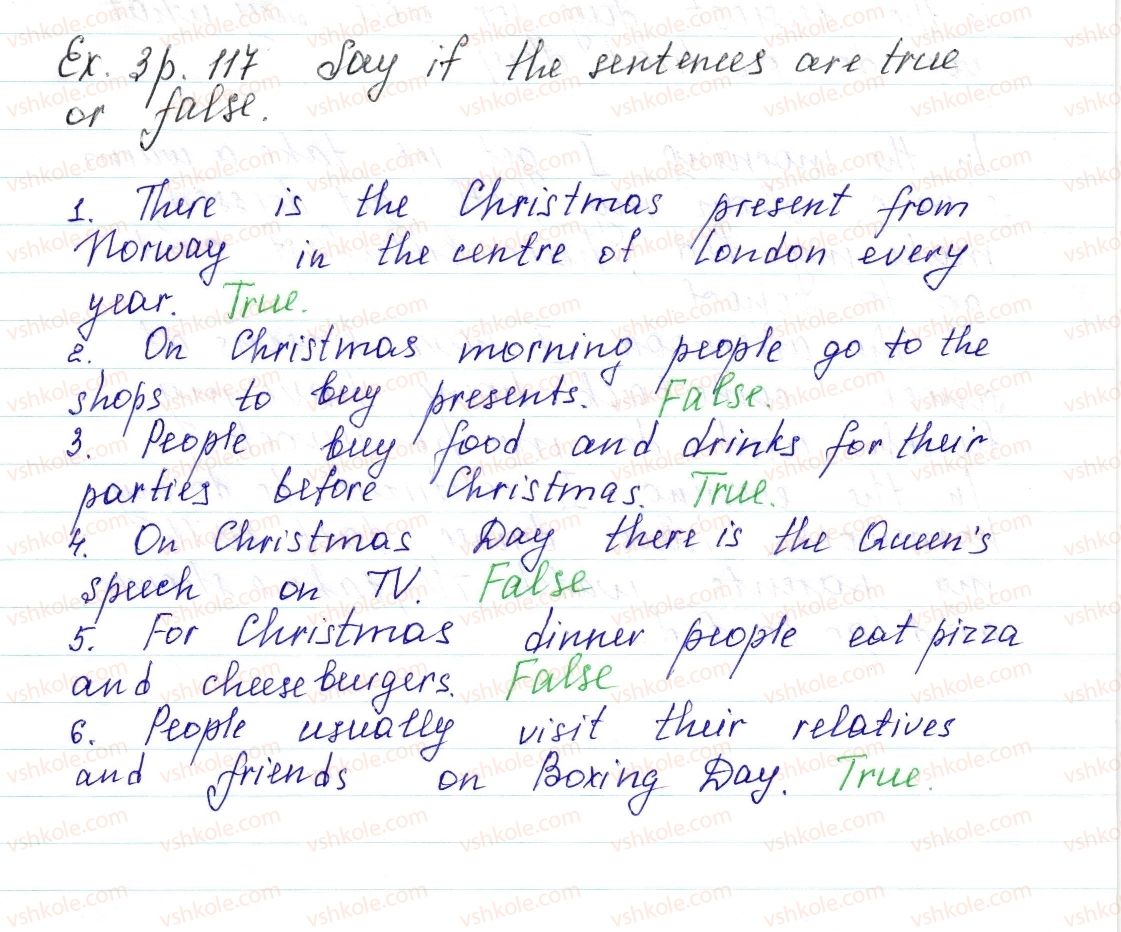 Ex. 3 p. 117 Say if the sentences are true
or false.
1. There is the Christmas present from
Norway in the centre of London every
year. True.
2. On Christmas morning people go to the
shops to buy presents. False.
3. People buy food and drinks for their
parties before Christmas. True.
4. On Christmas Day there is the Queen's
speech on TV. False
5. For Christmas dinner people eat pizza
and cheeseburgers. False
6. People usually visit their relatives
and friends on Boxing Day. True.
vshkole.com